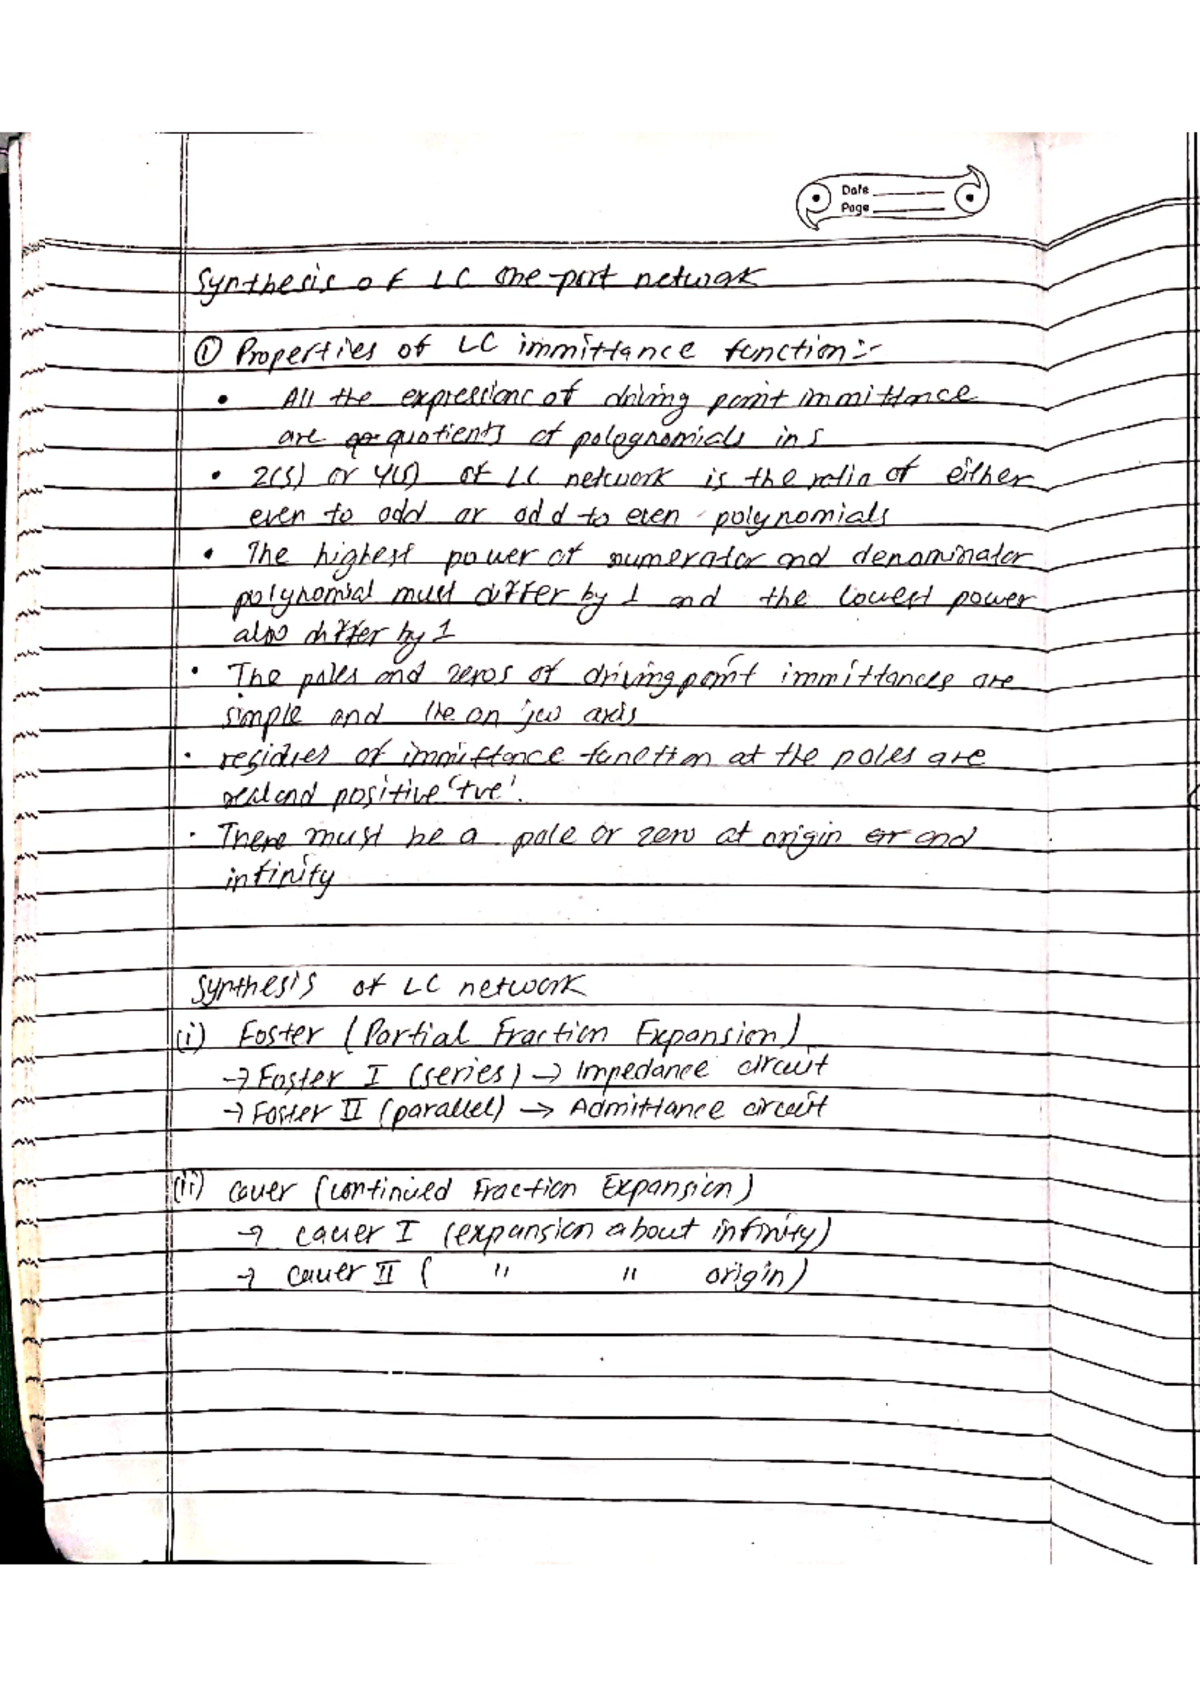 Date
Page
Synthesis of LC One-port network
① Properties of LC immittance function:-
• All the expressions of driving point immittance
are quotients of polognomials in s
• Z(s) or Y(s) of LC network is the ratio of either
even to odd or odd to even polynomials
• The highest power of numerator and denominator
polynomial must differ by 1 and the lowest power
also differ by 1
• The poles and zeros of driving point immittances are
simple and lie on jw axis
• residues of immittance function at the poles are
real and positive 'tve'.
• There must be a pole or zero at origin or and
infinity
Synthesis of LC network
(i) Foster (Partial Fraction Expansion)
→ Foster I (series) → Impedance circuit
→ Foster II (parallel) → Admittance circuit
(ii) Cauer (continued Fraction Expansion)
→ Cauer I (expansion about infinity)
→ Cauer II ( " " origin)